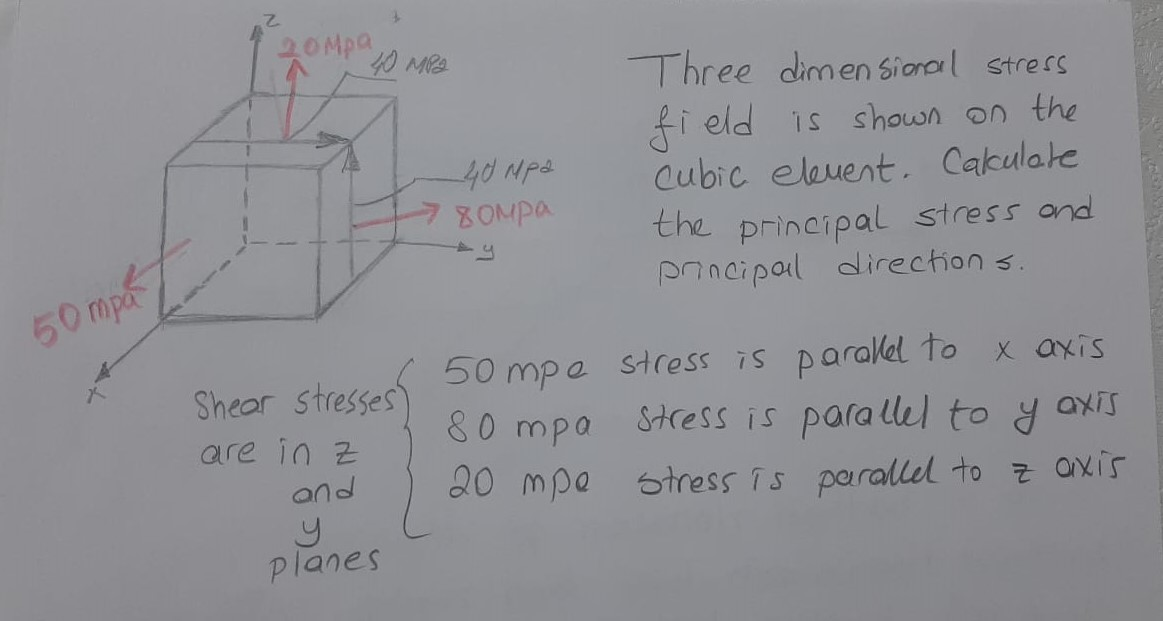 z
20 Mpa
40 MPa
40 MPa
80Mpa
y
50 mpa
x
Three dimensional stress
field is shown on the
cubic elevent. Calculate
the principal stress and
principal directions.
Shear stresses
are in z
and
y
planes
50 mpa stress is parallel to x axis
80 mpa stress is parallel to y axis
20 mpa stress is parallel to z axis